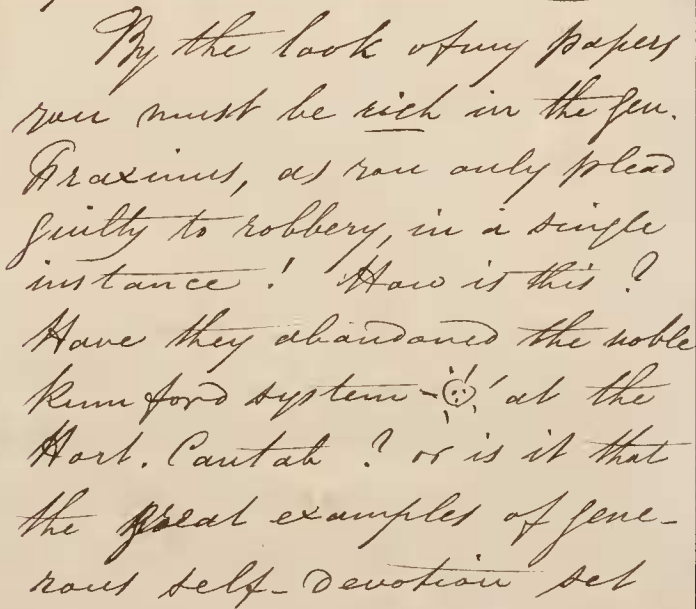 By the look of my papers
you must be rich in the gen.
Fraxinus, as you only plead
guilty to robbery, in a single
instance! How is this?
Have they abandoned the noble
Rumford system - ! at the
Hort. Cantab? or is it that
the great examples of gene-
rous self-devotion set